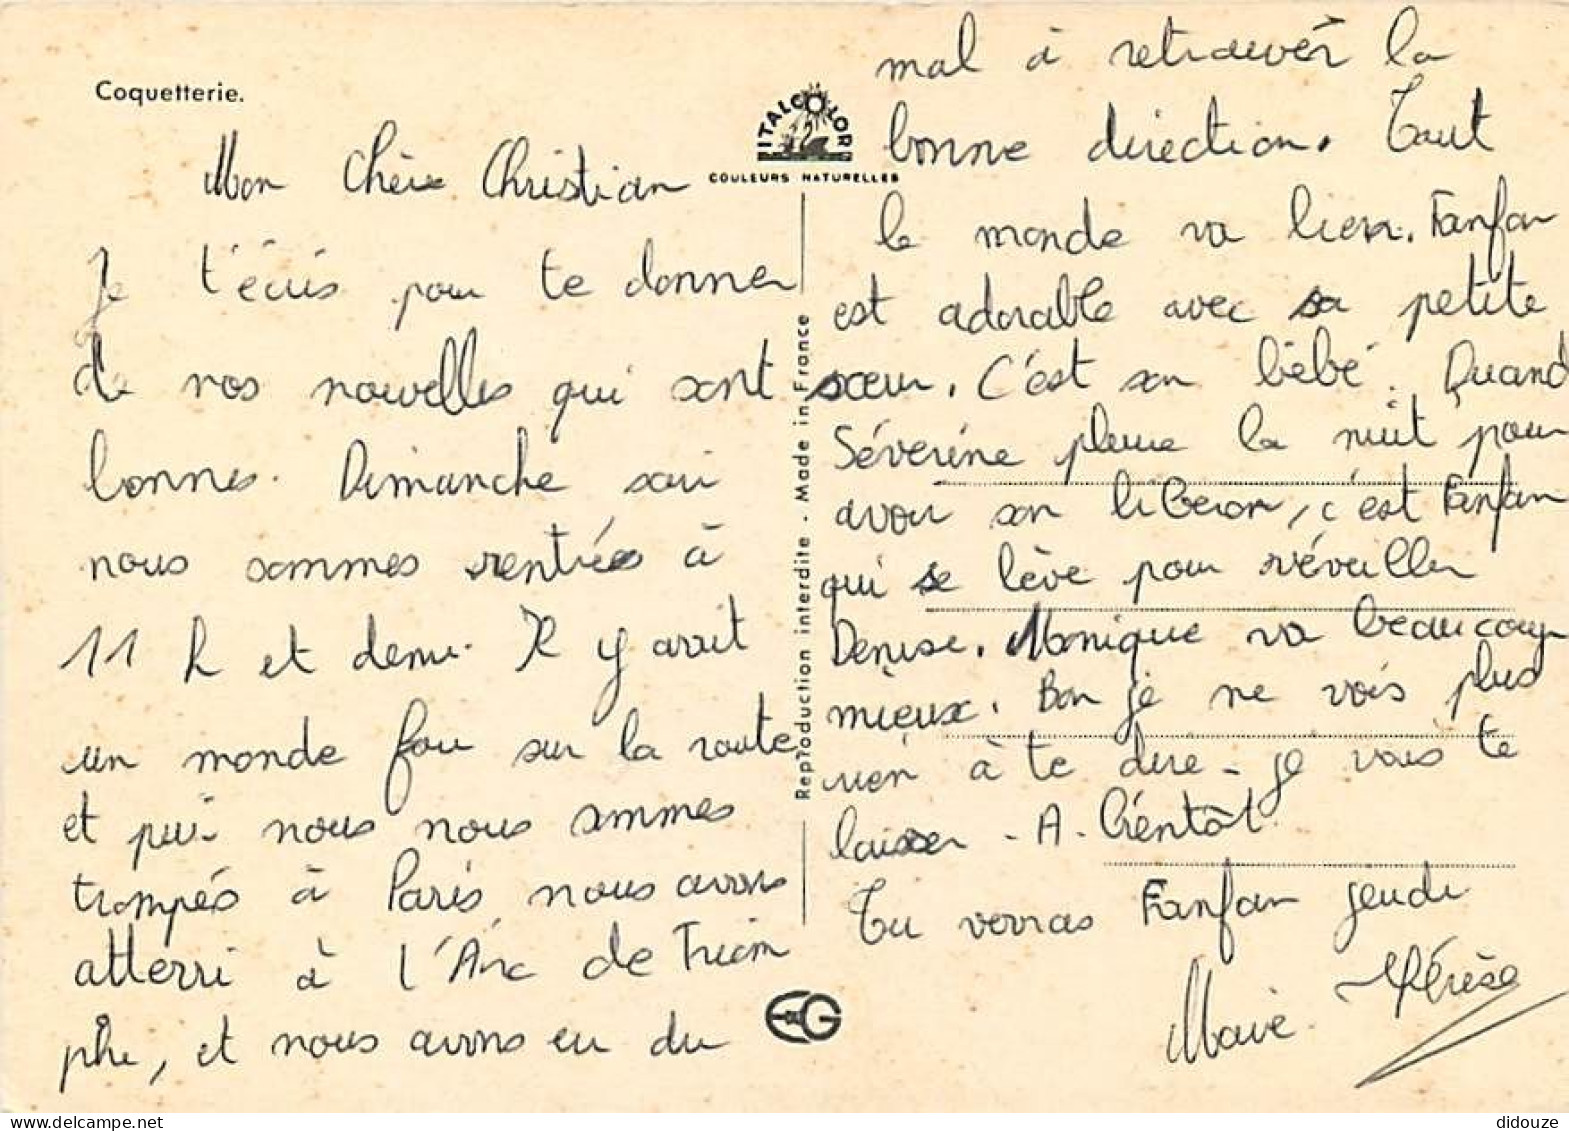 Coquetterie.
ITALCOLOR
COULEURS NATURELLES
Mon Chèr Christian
Je t'écris pour te donner
de nos nouvelles qui sont
bonnes. Dimanche soir
nous sommes rentrés à
11 h et demi. Il y avait
un monde fou sur la route
et puis nous nous sommes
trompés à Paris nous avons
atterri à l'Arc de Triom
phe, et nous avons eu du
Reproduction interdite - Made in France
mal à retrouver la
bonne direction. Tout
le monde va bien. Fanfan
est adorable avec sa petite
sœur. C'est son bébé. Quand
Séverine pleure la nuit pour
avoir son biberon, c'est Fanfan
qui se lève pour réveiller
Denise. Monique va beaucoup
mieux. Bon je ne vois plus
rien à te dire - je vais te
laisser - A - Bientôt
Tu verras Fanfan jeudi
Marie Thérèse
EG
didouze